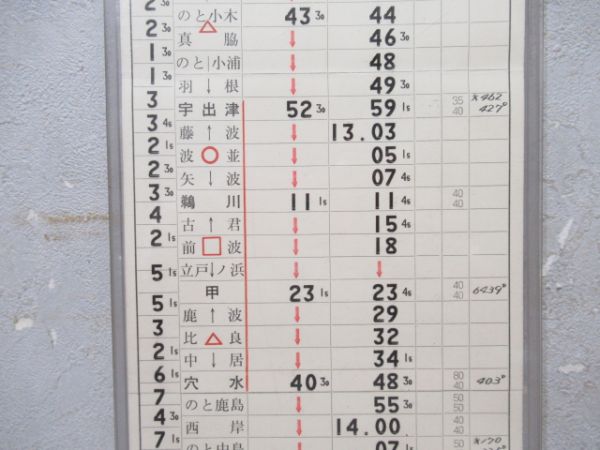 2 30
のと小木 43 30 44
2 30
真 脇 ↓ 46 30
1 30
のと小浦 ↓ 48
1 30
羽 ↓ 根 ↓ 49 30
3
宇出津 52 30 59 1s 35 40 ×462 427°
3 4s
藤 ↑ 波 ↓ 13.03
2 1s
波 ○ 並 ↓ 05 1s
2 30
矢 ↓ 波 ↓ 07 4s
3 30
鵜 川 11 1s 11 4s 40 40
4
古 ↑ 君 ↓ 15 4s
2 1s
前 □ 波 ↓ 18
立戸↓ノ浜 ↓ ↓
5 1s
甲 23 1s 23 4s 40 40 6439°
5 1s
鹿 ↑ 波 ↓ 29
3
比 △ 良 ↓ 32
2 1s
中 ↓ 居 ↓ 34 1s
6 1s
穴 水 40 30 48 30 80 40 403°
7
のと鹿島 ↓ 55 30 50 50
4 30
西 岸 ↓ 14.00 40 40
7 1s
のと中島 ↓ 07 1s 50